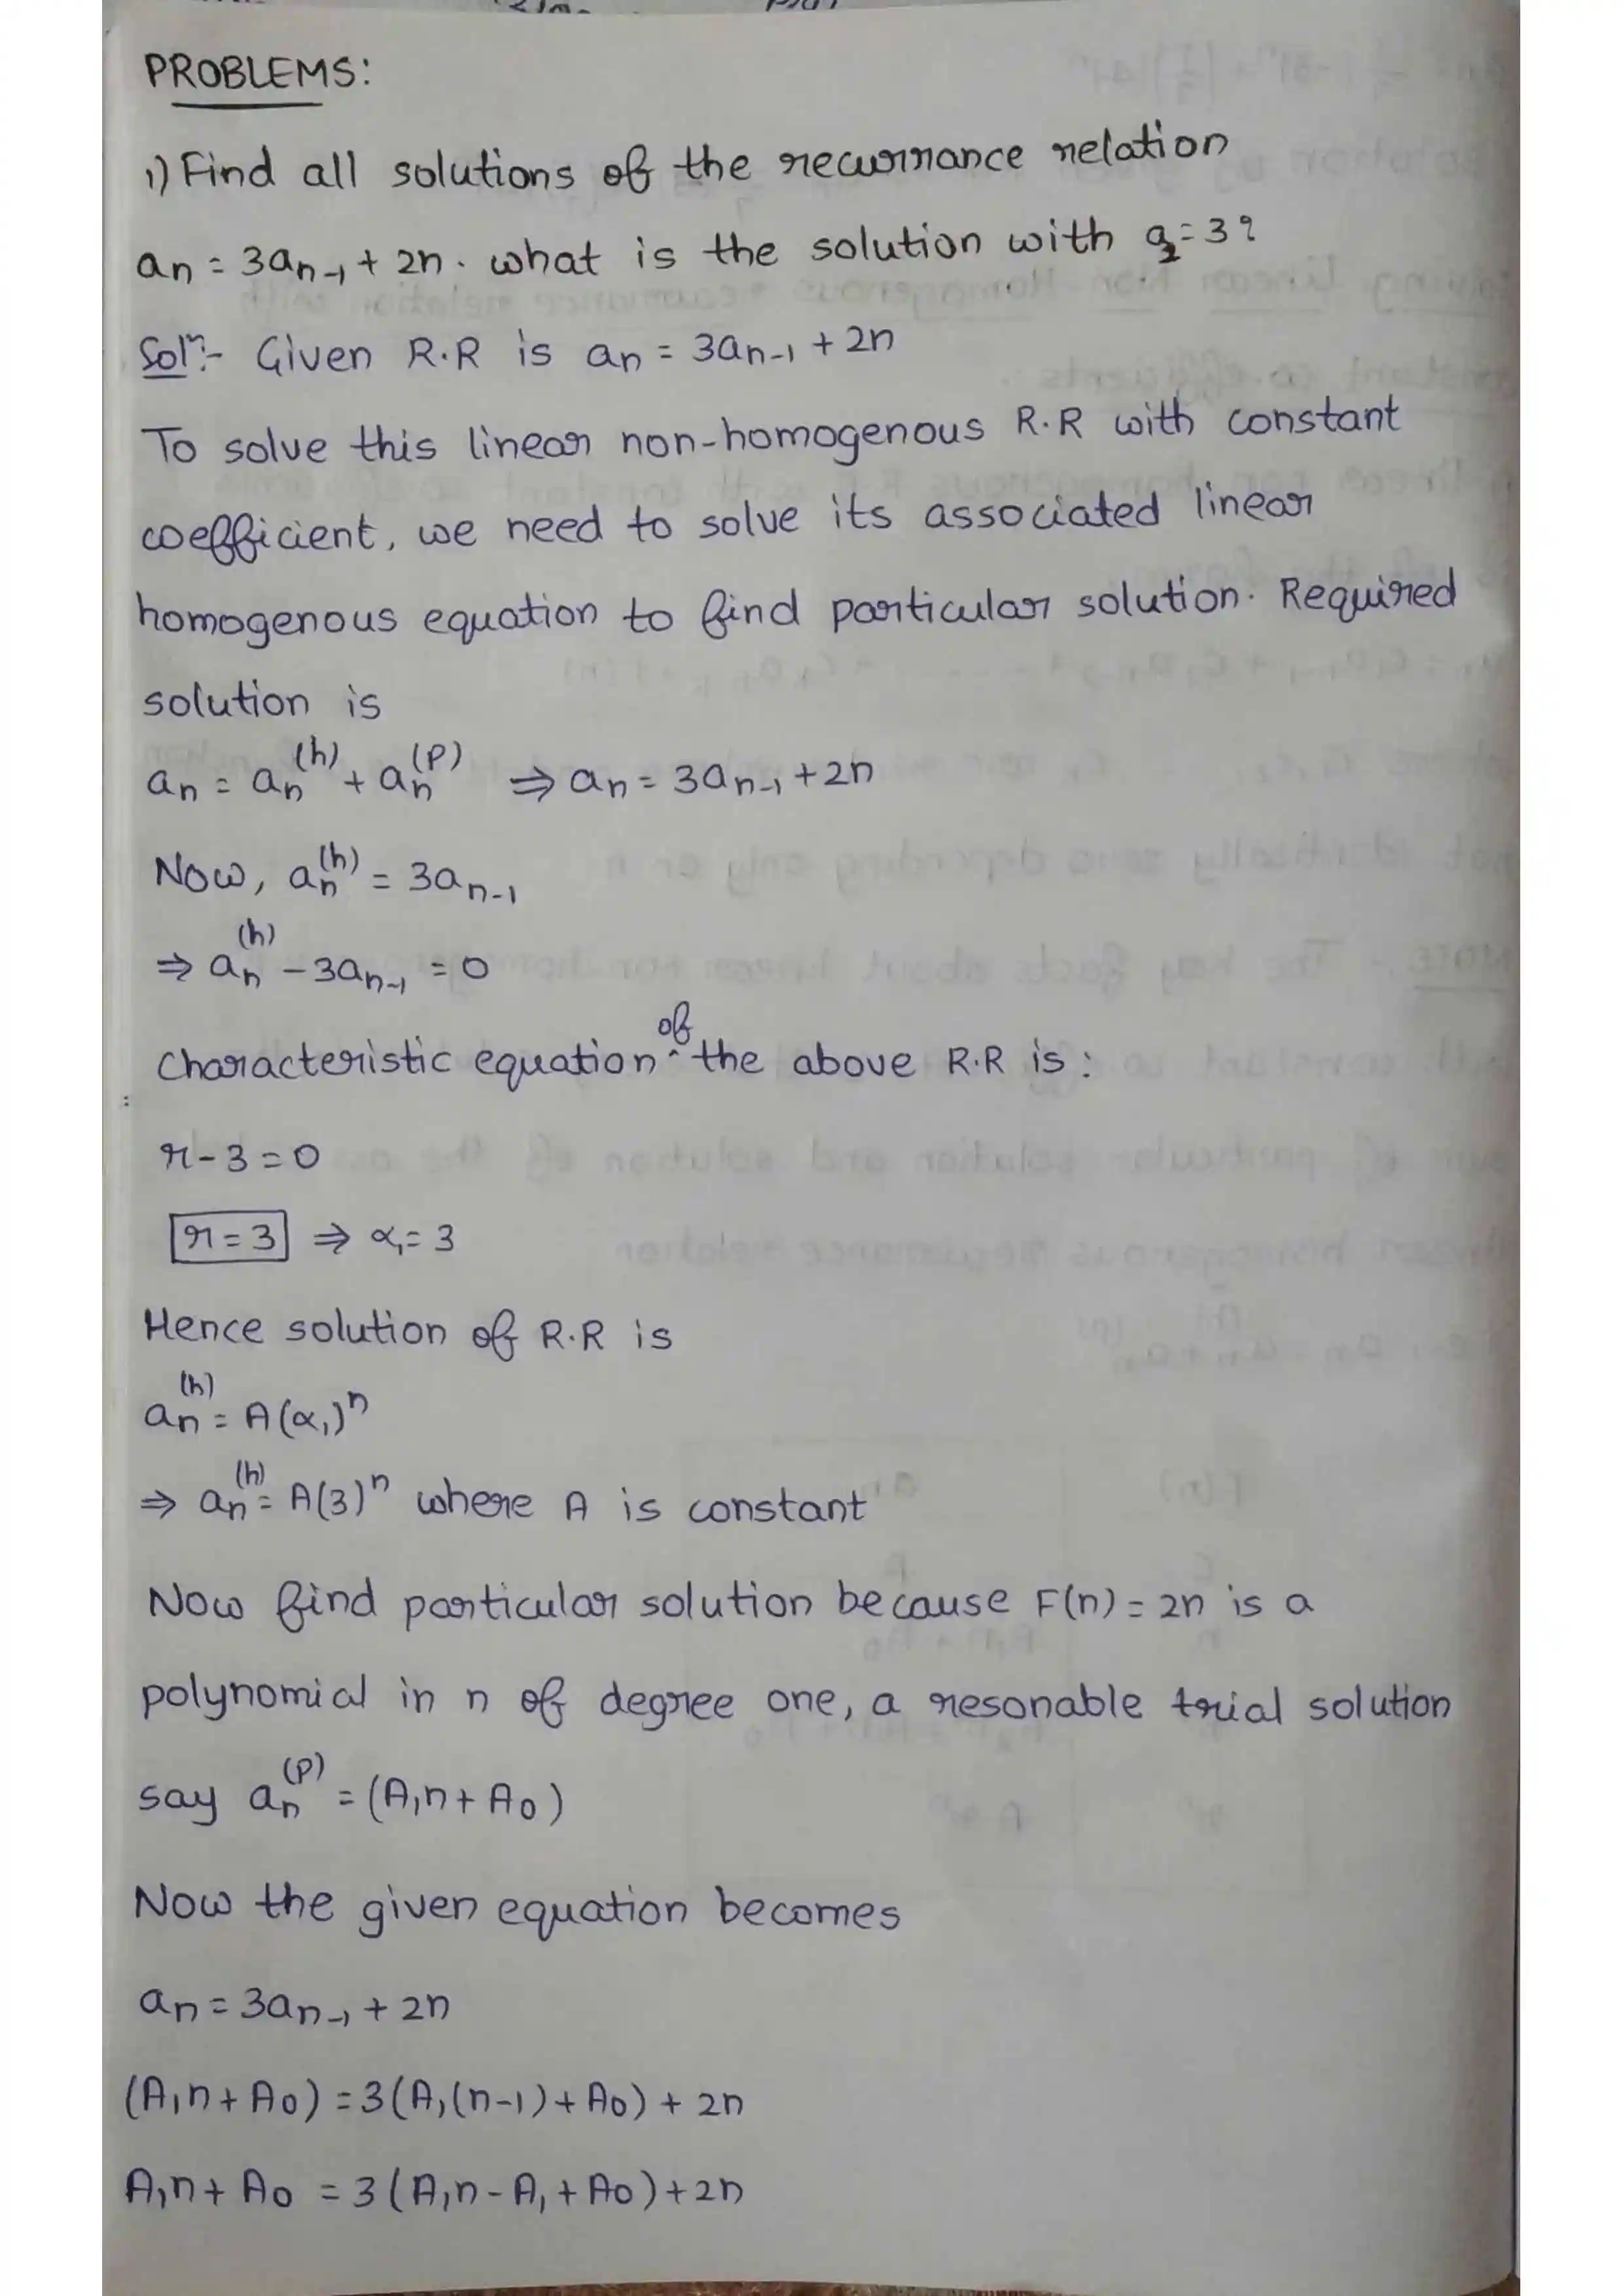 PROBLEMS:
1) Find all solutions of the recurrance relation
an = 3an-1 + 2n. what is the solution with a2=3?
Solⁿ:- Given R.R is an = 3an-1 + 2n
To solve this linear non-homogenous R.R with constant
coefficient, we need to solve its associated linear
homogenous equation to find particular solution. Required
solution is
an = an(h) + an(P) ⇒ an = 3an-1 + 2n
Now, an(h) = 3an-1
⇒ an(h) - 3an-1 = 0
Characteristic equation of the above R.R is :
r - 3 = 0
r = 3 ⇒ α1 = 3
Hence solution of R.R is
an(h) = A(α1)ⁿ
⇒ an(h) = A(3)ⁿ where A is constant
Now find particular solution because F(n) = 2n is a
polynomial in n of degree one, a resonable trial solution
say an(P) = (A1n + A0)
Now the given equation becomes
an = 3an-1 + 2n
(A1n + A0) = 3(A1(n-1) + A0) + 2n
A1n + A0 = 3(A1n - A1 + A0) + 2n